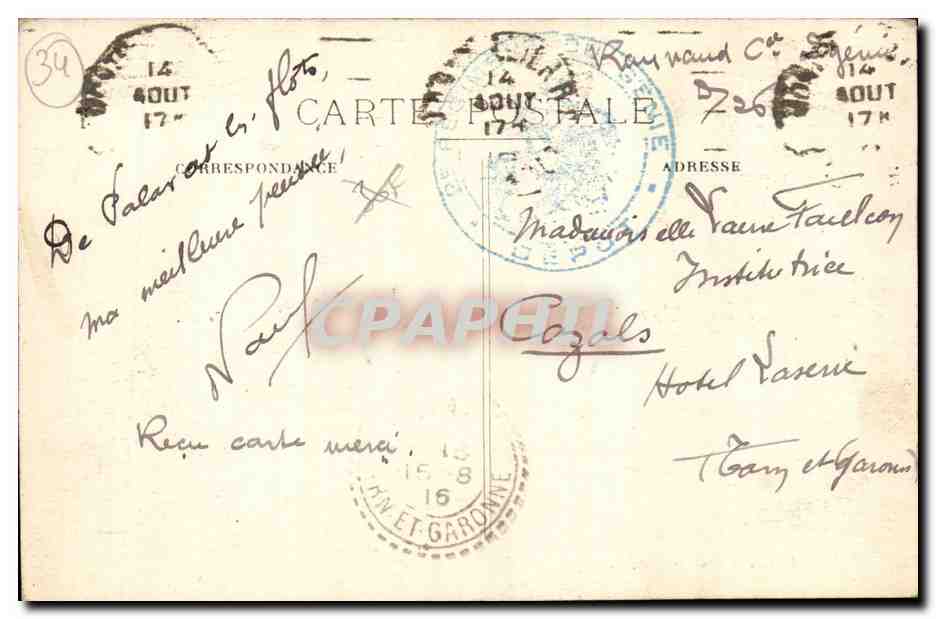 34
14
AOUT
17H
14
AOUT
17H
14
AOUT
17H
Raynaud Cie Génie
CARTE POSTALE
CORRESPONDANCE
ADRESSE
GÉNIE
DEPOT
De Palavas les flots,
ma meilleure pensée,
Paul
Reçu carte merci.
Mademoiselle
Institutrice
Cazals
Hotel Laserre
(Tarn et Garonne)
CPAPHIL
15-8
16
TARN-ET-GARONNE